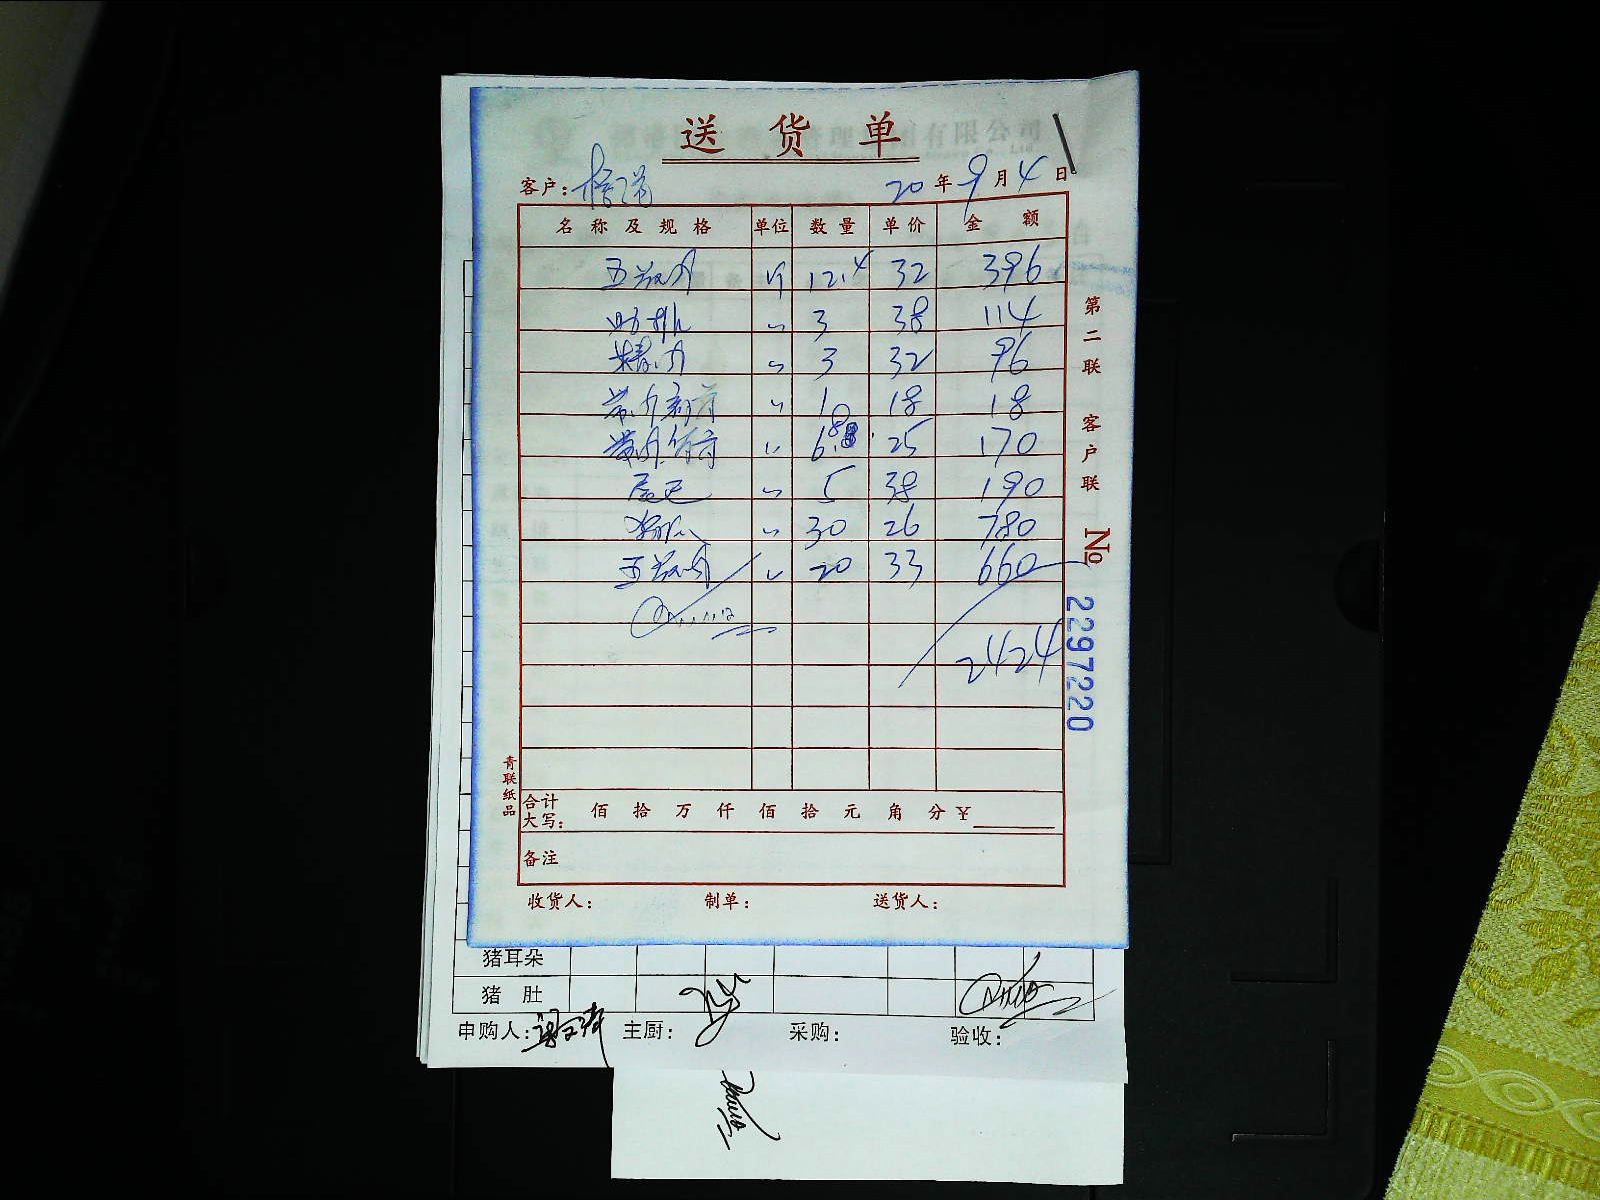 送货单
客户: 20年9月4日
名称及规格 单位 数量 单价 金额
五花肉 斤 12.4 32 396
肋排 〃 3 38 114
精肉 〃 3 32 96
带肉 〃 1 18 18
带肉 〃 6.8 25 170
尾巴 〃 5 38 190
〃 30 26 780
五花肉 〃 20 33 660
2424
合计大写: 佰 拾 万 仟 佰 拾 元 角 分 ¥
备注
收货人: 制单: 送货人:
青联纸品
第二联 客户联
№ 2297220
猪耳朵
猪肚
申购人: 主厨: 采购: 验收: